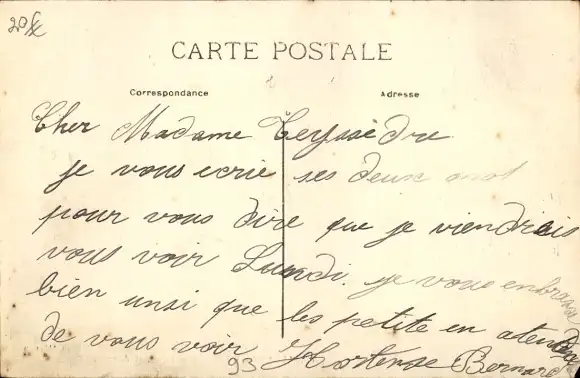 CARTE POSTALE
Correspondance
Adresse
Cher Madame Teyssèdre
je vous ecrie ses deux mot
pour vous dire que je viendrais
vous voir Lundi. je vous embrasse
bien insi que les petite en atendant
de vous voir Hortense Bernard
93